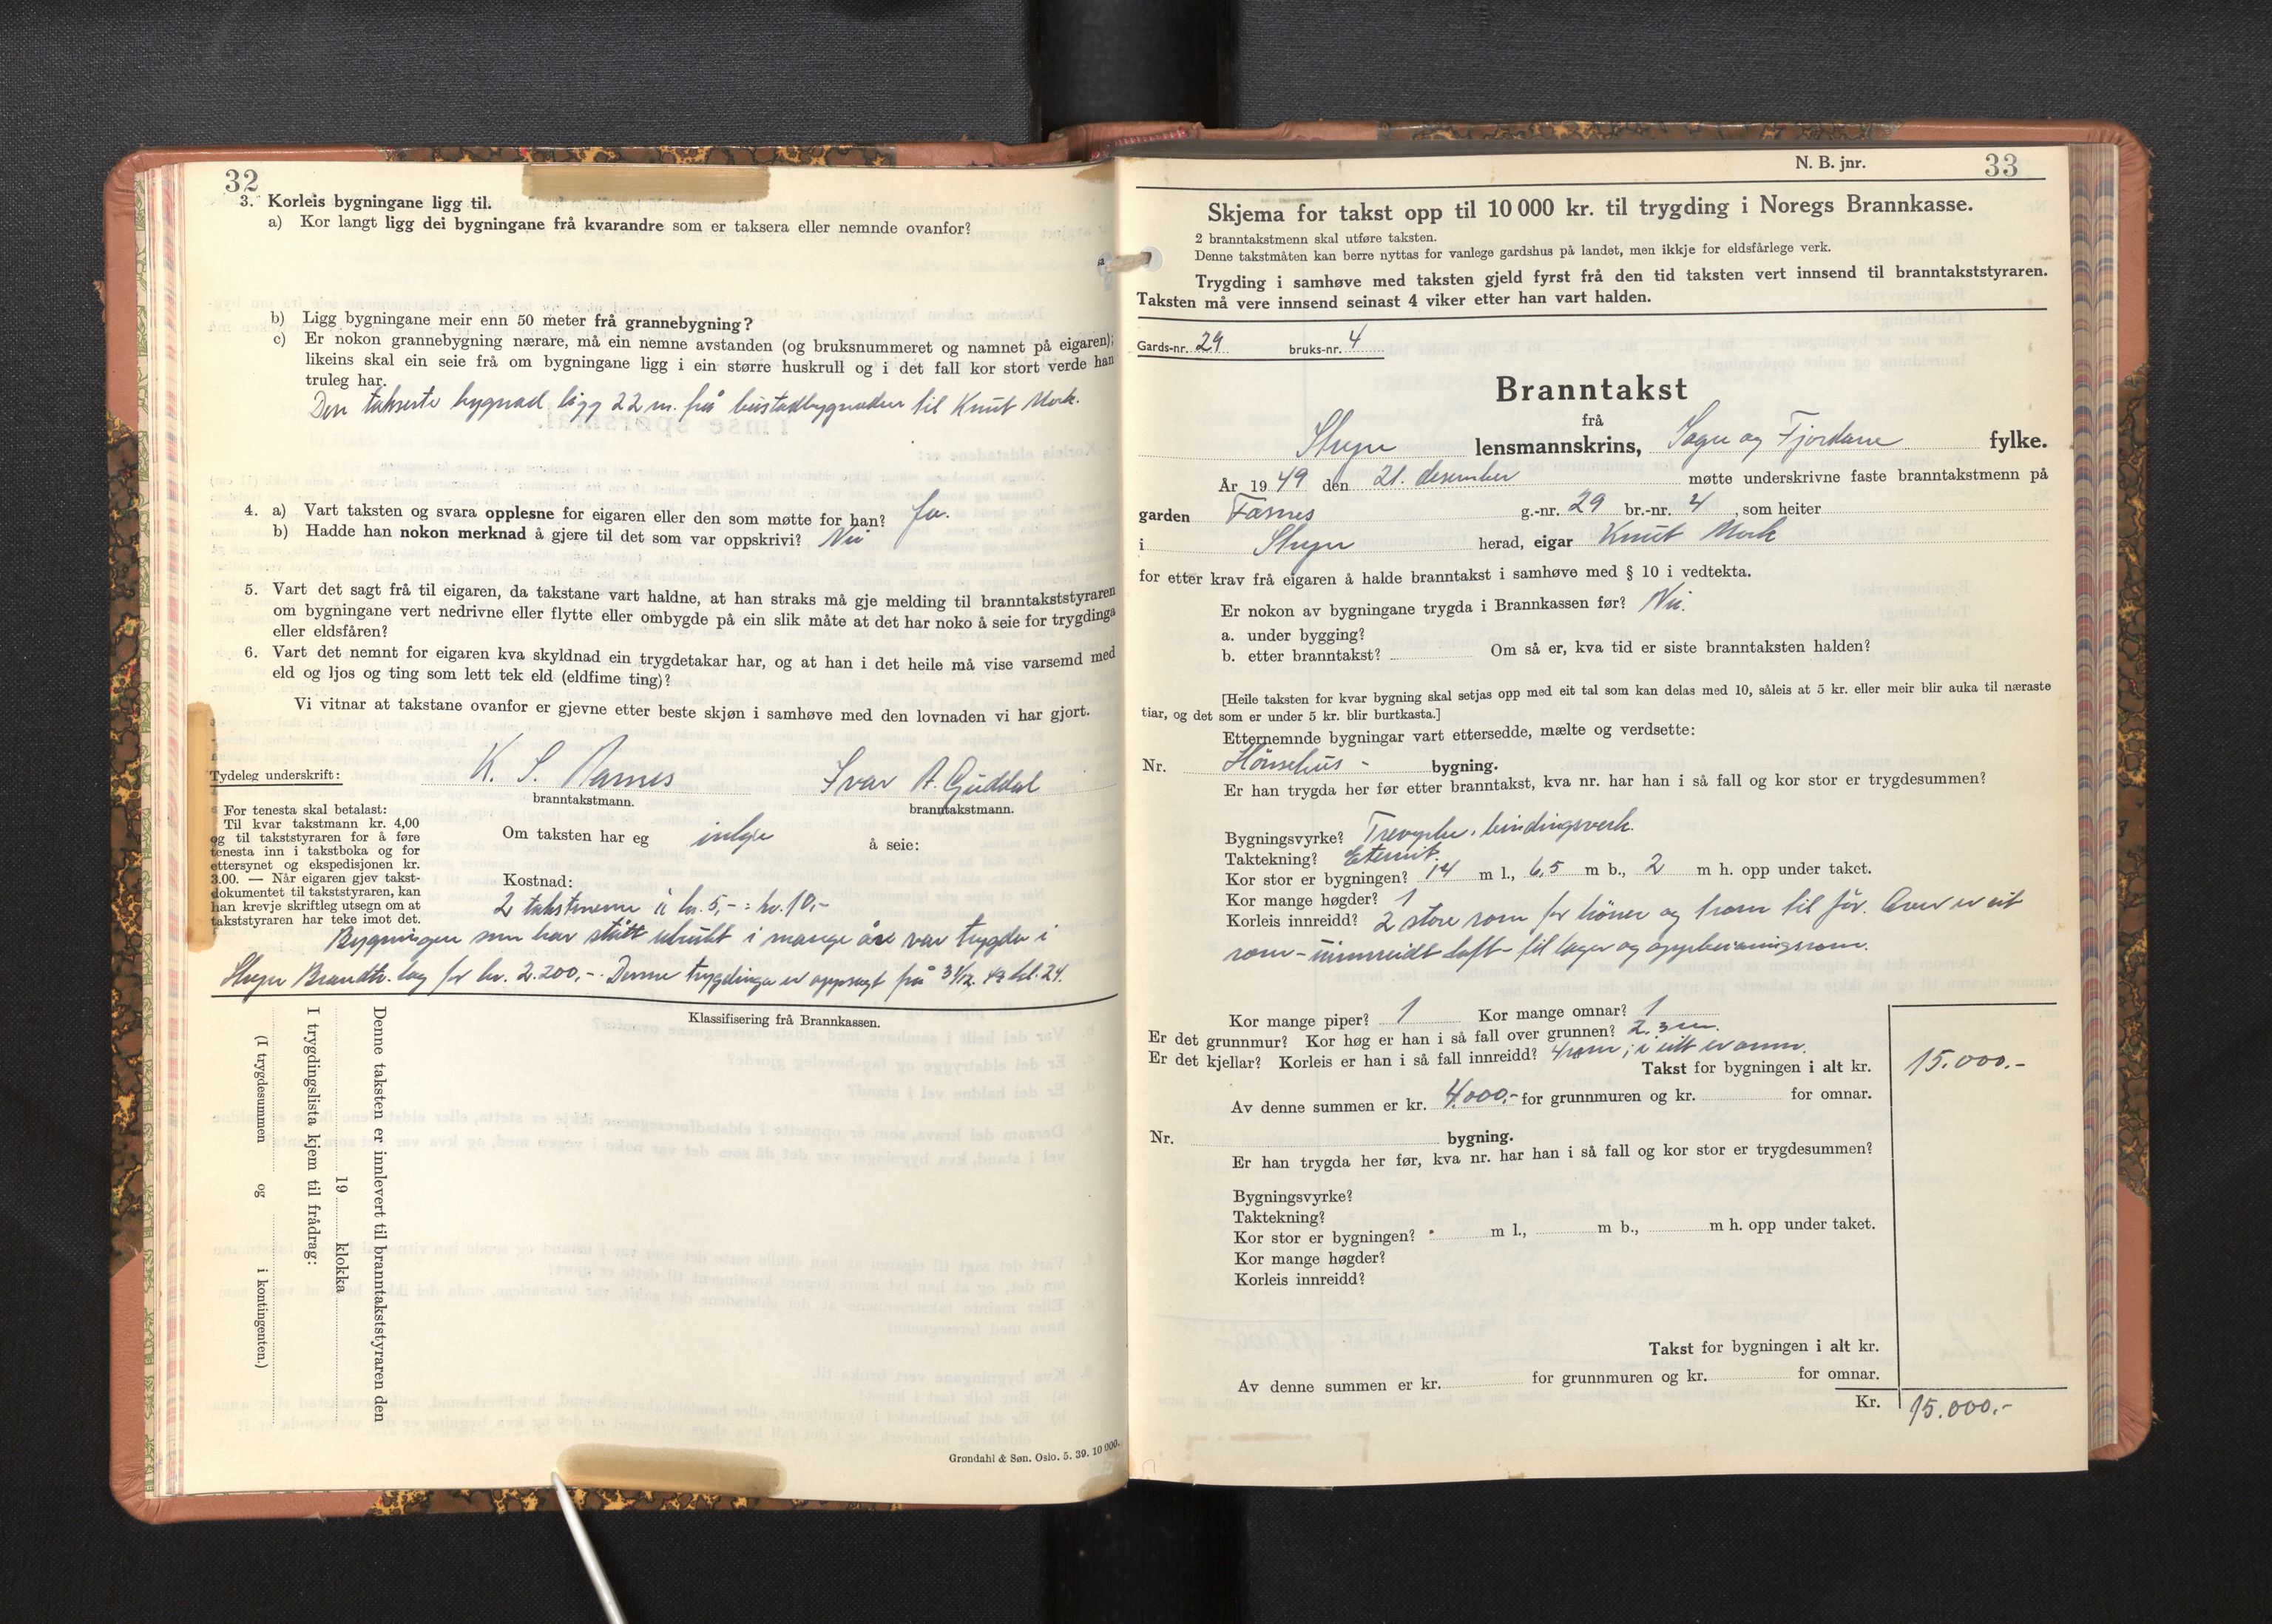 32
3. Korleis bygningane ligg til.
a) Kor langt ligg dei bygningane frå kvarandre som er taksera eller nemnde ovanfor?
b) Ligg bygningane meir enn 50 meter frå grannebygning?
c) Er nokon grannebygning nærare, må ein nemne avstanden (og bruksnummeret og namnet på eigaren);
likeins skal ein seie frå om bygningane ligg i ein større huskrull og i det fall kor stort verde han
truleg har.
Den takserte bygnad ligg 22 m. frå bustadbygnaden til Knut Mork.
4. a) Vart taksten og svara opplesne for eigaren eller den som møtte for han? Ja.
b) Hadde han nokon merknad å gjere til det som var oppskrivi? Nei
5. Vart det sagt frå til eigaren, da takstane vart haldne, at han straks må gje melding til branntakststyraren
om bygningane vert nedrivne eller flytte eller ombygde på ein slik måte at det har noko å seie for trygdinga
eller eldsfåren?
6. Vart det nemnt for eigaren kva skyldnad ein trygdetakar har, og at han i det heile må vise varsemd med
eld og ljos og ting som lett tek eld (eldfime ting)?
Vi vitnar at takstane ovanfor er gjevne etter beste skjøn i samhøve med den lovnaden vi har gjort.
Tydeleg underskrift: K. S. Rasnes Ivar A. Guddal
branntakstmann. branntakstmann.
For tenesta skal betalast:
Til kvar takstmann kr. 4,00
og til takststyraren for å føre
tenesta inn i takstboka og for
ettersynet og ekspedisjonen kr.
3.00. — Når eigaren gjev takst-
dokumentet til takststyraren, kan
han krevje skriftleg utsegn om at
takststyraren har teke imot det.
Om taksten har eg inkje å seie:
Kostnad:
2 takstmenn á kr. 5,- = kr. 10,-
Bygningen som har stått ubrukt i mange åre var trygda i
Stryn Brandtr. lag for kr. 2.200,-. Denne trygdinga er oppsagt frå 31/12. 49 kl. 24.
Klassifisering frå Brannkassen.
Denne taksten er innlevert til branntakststyraren den
19 klokka
I trygdingslista kjem til frådrag:
(I trygdesummen og i kontingenten.)
Grøndahl & Søn. Oslo. 5. 39. 10 000.
N. B. jnr. 33
Skjema for takst opp til 10 000 kr. til trygding i Noregs Brannkasse.
2 branntakstmenn skal utføre taksten.
Denne takstmåten kan berre nyttas for vanlege gardshus på landet, men ikkje for eldsfårlege verk.
Trygding i samhøve med taksten gjeld fyrst frå den tid taksten vert innsend til branntakststyraren.
Taksten må vere innsend seinast 4 viker etter han vart halden.
Gards-nr. 29 bruks-nr. 4
Branntakst
frå
Stryn lensmannskrins, Sogn og Fjordane fylke.
År 1949 den 21. desember møtte underskrivne faste branntakstmenn på
garden g.-nr. 29 br.-nr. 4, som heiter
i Stryn herad, eigar Knut Mork
for etter krav frå eigaren å halde branntakst i samhøve med § 10 i vedtekta.
Er nokon av bygningane trygda i Brannkassen før? Nei.
a. under bygging?
b. etter branntakst? Om så er, kva tid er siste branntaksten halden?
[Heile taksten for kvar bygning skal setjas opp med eit tal som kan delas med 10, såleis at 5 kr. eller meir blir auka til næraste
tiar, og det som er under 5 kr. blir burtkasta.]
Etternemnde bygningar vart ettersedde, mælte og verdsette:
Nr. Hönsehus - bygning.
Er han trygda her før etter branntakst, kva nr. har han i så fall og kor stor er trygdesummen?
Bygningsvyrke? Trevyrke, bindingsverk.
Taktekning? Eternit.
Kor stor er bygningen? 14 m l., 6,5 m b., 2 m h. opp under taket.
Kor mange høgder? 1
Korleis innreidd? 2 store rom for höner og 1 rom til fôr. Over er eit
rom - uinnreidt loft - til lager og oppbevaringsrom.
Kor mange piper? 1 Kor mange omnar? 1
Er det grunnmur? Kor høg er han i så fall over grunnen? 2.3 m.
Er det kjellar? Korleis er han i så fall innreidd? 4 rom; i eitt er omn.
Takst for bygningen i alt kr. 15.000.-
Av denne summen er kr. 4.000,- for grunnmuren og kr. for omnar.
Nr. bygning.
Er han trygda her før, kva nr. har han i så fall og kor stor er trygdesummen?
Bygningsvyrke?
Taktekning?
Kor stor er bygningen? m l., m b., m h. opp under taket.
Kor mange høgder?
Korleis innreidd?
Takst for bygningen i alt kr.
Av denne summen er kr. for grunnmuren og kr. for omnar.
Kr. 15.000.-